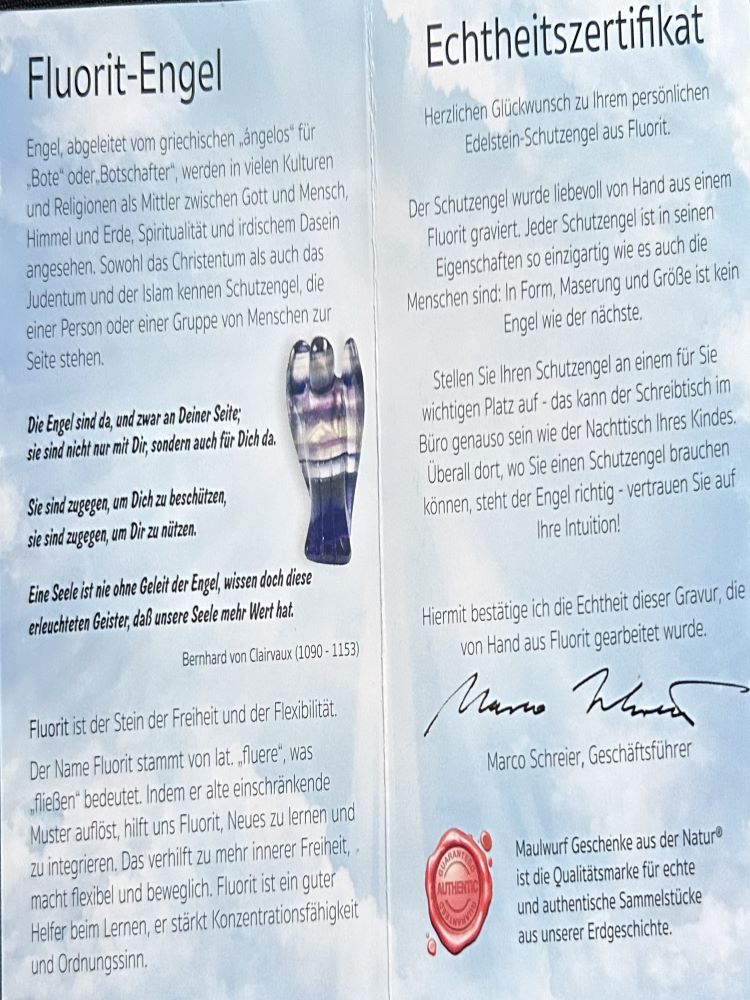 Fluorit-Engel
Engel, abgeleitet vom griechischen „ángelos" für
„Bote" oder„Botschafter", werden in vielen Kulturen
und Religionen als Mittler zwischen Gott und Mensch,
Himmel und Erde, Spiritualität und irdischem Dasein
angesehen. Sowohl das Christentum als auch das
Judentum und der Islam kennen Schutzengel, die
einer Person oder einer Gruppe von Menschen zur
Seite stehen.
Die Engel sind da, und zwar an Deiner Seite;
sie sind nicht nur mit Dir, sondern auch für Dich da.
Sie sind zugegen, um Dich zu beschützen,
sie sind zugegen, um Dir zu nützen.
Eine Seele ist nie ohne Geleit der Engel, wissen doch diese
erleuchteten Geister, daß unsere Seele mehr Wert hat.
Bernhard von Clairvaux (1090 - 1153)
Fluorit ist der Stein der Freiheit und der Flexibilität.
Der Name Fluorit stammt von lat. „fluere", was
„fließen" bedeutet. Indem er alte einschränkende
Muster auflöst, hilft uns Fluorit, Neues zu lernen und
zu integrieren. Das verhilft zu mehr innerer Freiheit,
macht flexibel und beweglich. Fluorit ist ein guter
Helfer beim Lernen, er stärkt Konzentrationsfähigkeit
und Ordnungssinn.
Echtheitszertifikat
Herzlichen Glückwunsch zu Ihrem persönlichen
Edelstein-Schutzengel aus Fluorit.
Der Schutzengel wurde liebevoll von Hand aus einem
Fluorit graviert. Jeder Schutzengel ist in seinen
Eigenschaften so einzigartig wie es auch die
Menschen sind: In Form, Maserung und Größe ist kein
Engel wie der nächste.
Stellen Sie Ihren Schutzengel an einem für Sie
wichtigen Platz auf - das kann der Schreibtisch im
Büro genauso sein wie der Nachttisch Ihres Kindes.
Überall dort, wo Sie einen Schutzengel brauchen
können, steht der Engel richtig - vertrauen Sie auf
Ihre Intuition!
Hiermit bestätige ich die Echtheit dieser Gravur, die
von Hand aus Fluorit gearbeitet wurde.
Marco Schreier
Marco Schreier, Geschäftsführer
GUARANTEED
AUTHENTIC
GUARANTEED
Maulwurf Geschenke aus der Natur®
ist die Qualitätsmarke für echte
und authentische Sammelstücke
aus unserer Erdgeschichte.